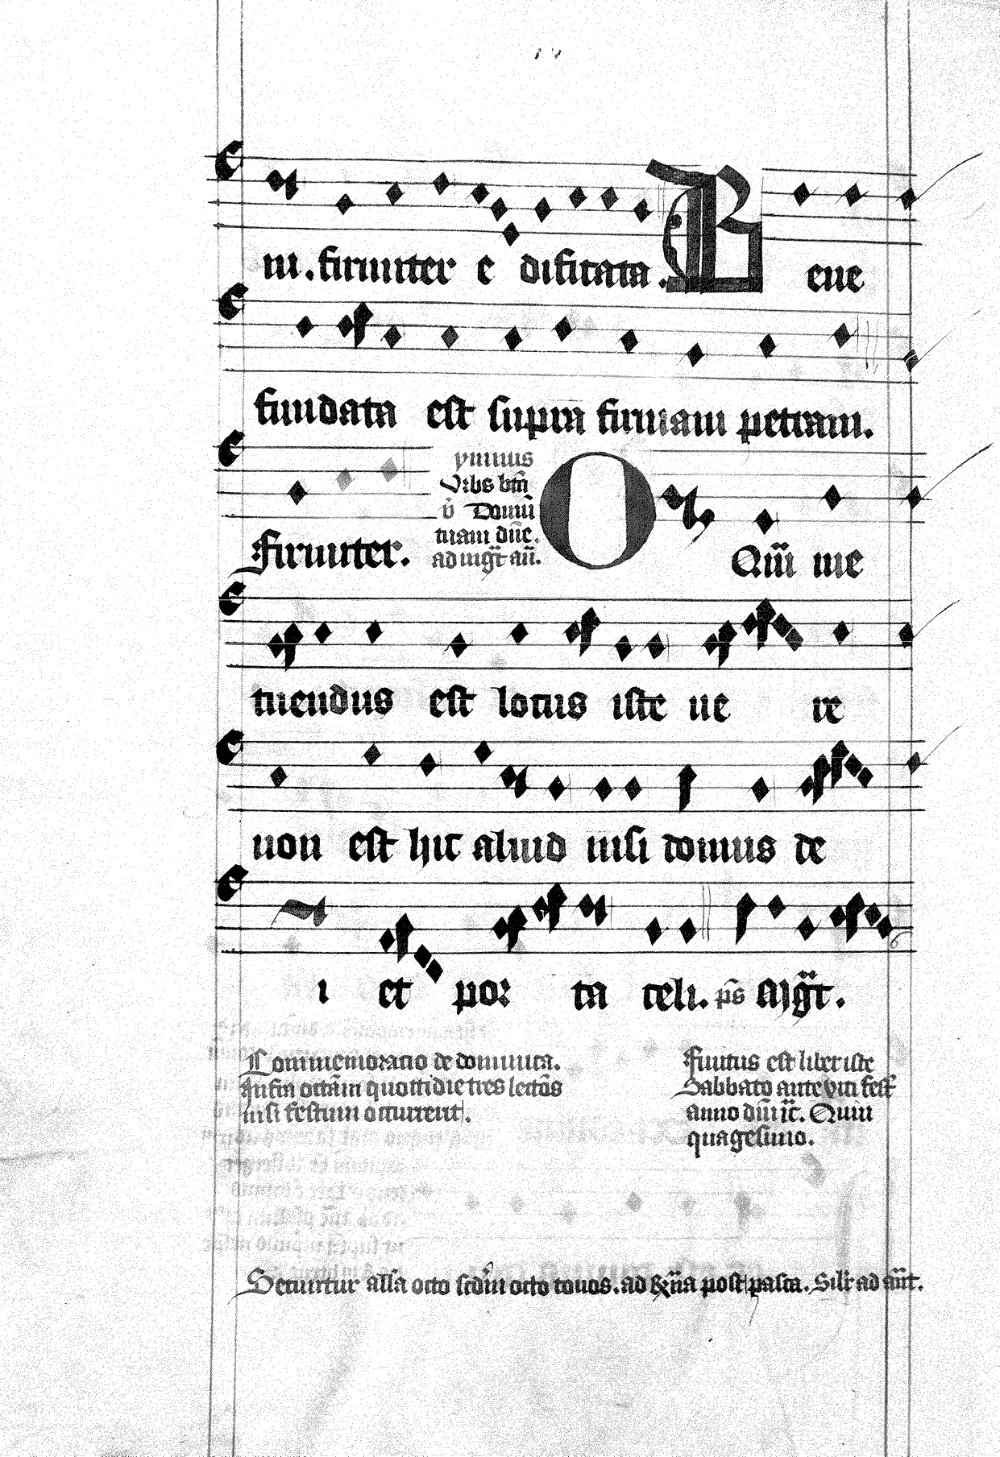 ni. firmiter e dificata. Bene
fundata est supra firmam petram.
Firmiter.
ymnus
Urbs btā
v̄ Domū
tuam dn̄e.
ad mgt̄ an̄.
O Qm̄ me
tuendus est locus iste ve re
non est hic aliud nisi domus de
i et por ta celi. ps̄ Mgt̄.
Commemoracio de dominica.
Infra octām quottidie tres lectōs
nisi festum occurrerit.
Finitus est liber iste
Sabbato ante viti fest̄
anno dn̄i
quagesimo.
Secuntur all'a octo scdm̄ octo tonos. ad post pasca. Silr ad ant.